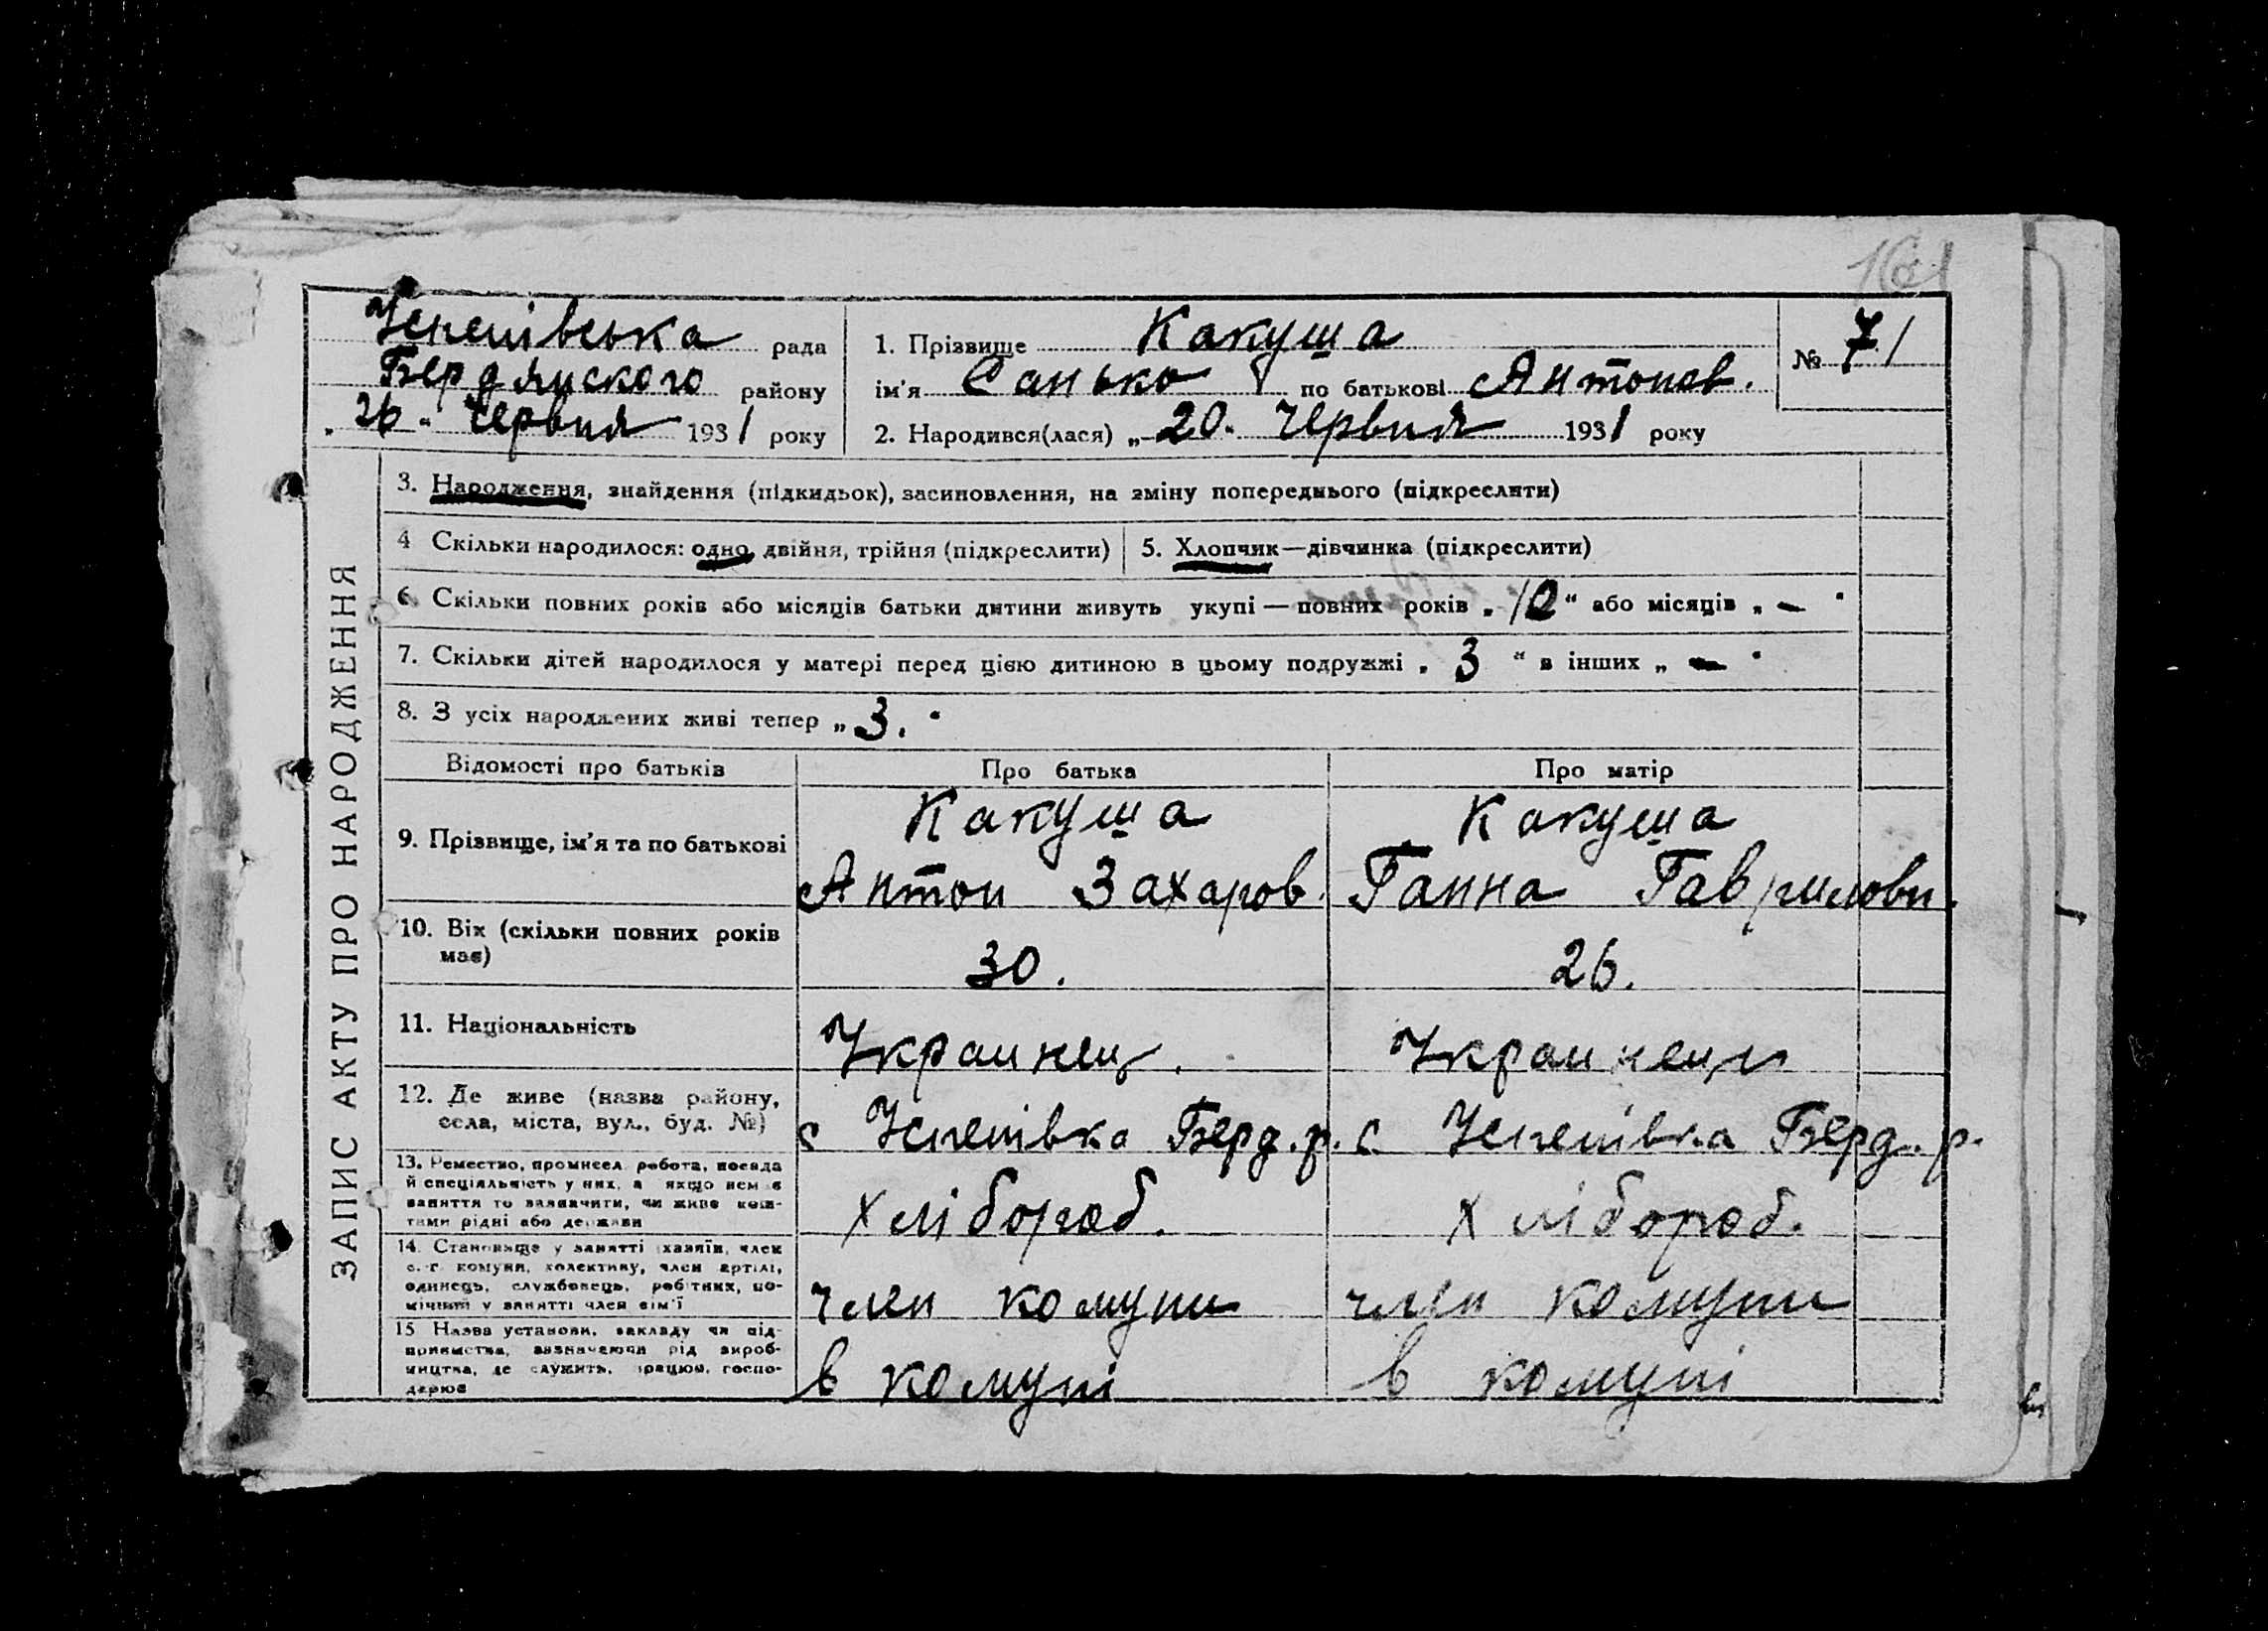 Успенівська рада
Бердянского району
„26“ червня 1931 року
1. Прізвище Какуша
ім'я Санько по батькові Антонов.
2. Народився(лася) „20“ червня 1931 року
№ 71
ЗАПИС АКТУ ПРО НАРОДЖЕННЯ
3. Народження, знайдення (підкидьок), засиновлення, на зміну попереднього (підкреслити)
4 Скільки народилося: одно, двійня, трійня (підкреслити)
5. Хлопчик—дівчинка (підкреслити)
6. Скільки повних років або місяців батьки дитини живуть укупі — повних років „10“ або місяців „—“
7. Скільки дітей народилося у матері перед цією дитиною в цьому подружжі „3“ в інших „—“
8. З усіх народжених живі тепер „3.“
Відомості про батьків Про батька Про матір
9. Прізвище, ім'я та по батькові
Какуша
Антон Захаров.
Какуша
Ганна Гавриловн.
10. Вік (скільки повних років
має)
30.
26.
11. Національність
Украинец.
Украинеци
12. Де живе (назва району,
села, міста, вул., буд. №)
с Успенівка Берд. р.
с. Успенівка Берд. р.
13. Ремество, промисел, робота, посада
й спеціяльність у них, а якщо немає
заняття то зазначити, чи живе кош-
тами рідні або держави
хлібороб.
хлібороб.
14. Становище у занятті (хазяїн, член
с.-г. комуни, колективу, член артілі,
одинець, службовець, робітник, по-
мічний у занятті член сім'ї
член комуни
член комуни
15 Назва установи, закладу чи під-
приємства, зазначаючи рід вироб-
ництва, де служить, працює, госпо-
дарює
в комуні
в комуні